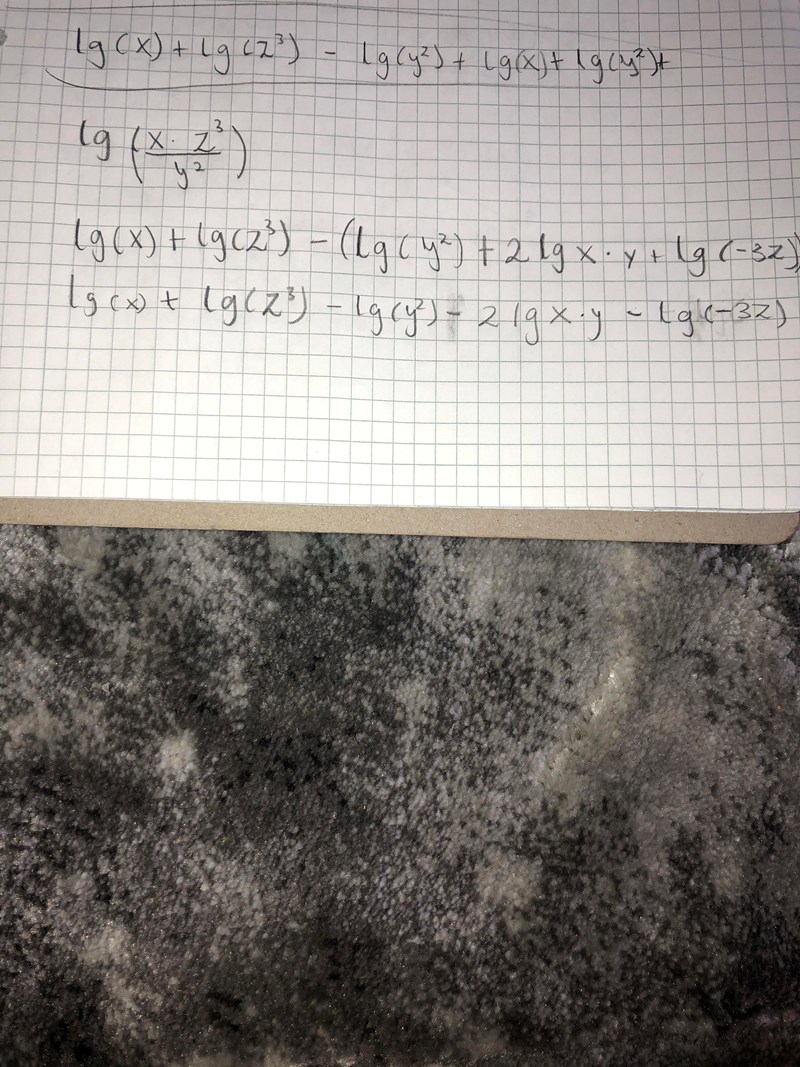 lg(x) + lg(z³) - lg(y²) + lg(x) + lg(y²) +
lg (x · z³ / y²)
lg(x) + lg(z³) - (lg(y²) + 2 lg x · y + lg(-3z)
lg(x) + lg(z³) - lg(y²) - 2 lg x · y - lg(-3z)